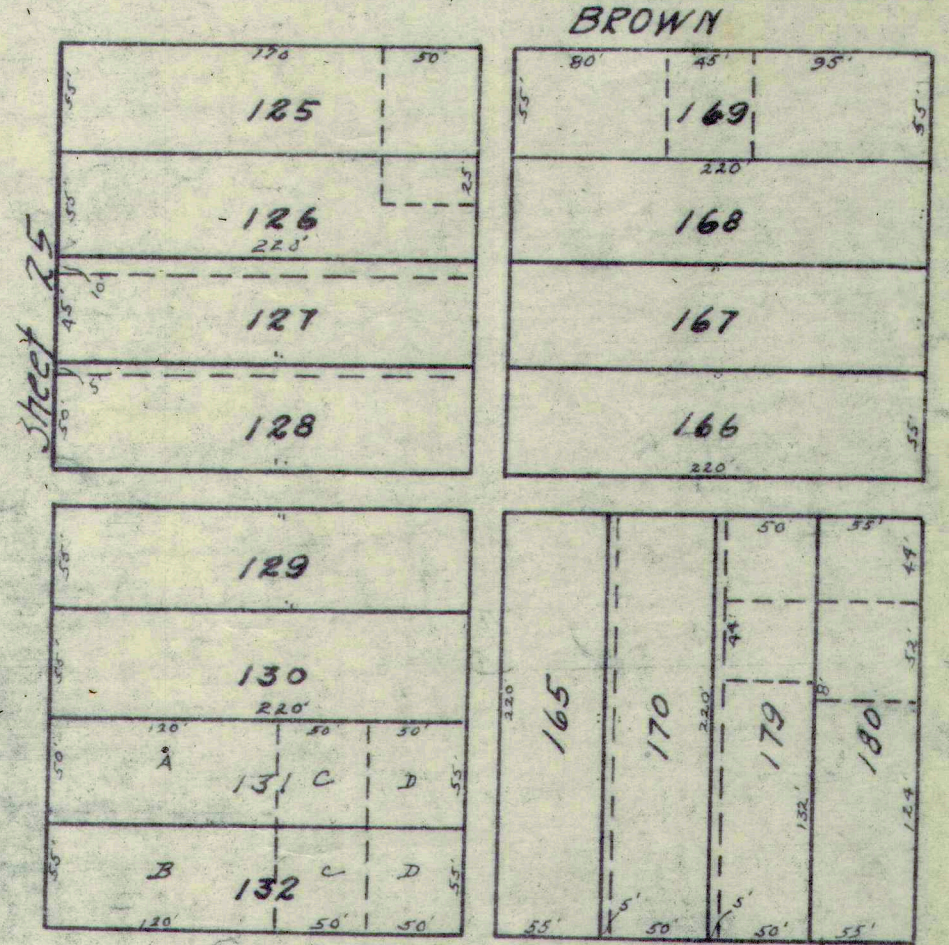 BROWN
170' 50'
55' 125
55' 126 25'
220'
10'
45' 127
"
5'
50' 128
"
Sheet 25
80' 45' 95'
55' 169 55'
220'
168
"
167
"
166 55'
220'
"
55' 129
"
55' 130
220'
120' 50' 50'
50' A 131 C D 55'
55' B 132 C D 55'
120' 50' 50'
50' 55'
44'
44' 52'
220' 165 170 220' 179 8' 180
132' 124'
5' 5'
55' 50' 50' 55'